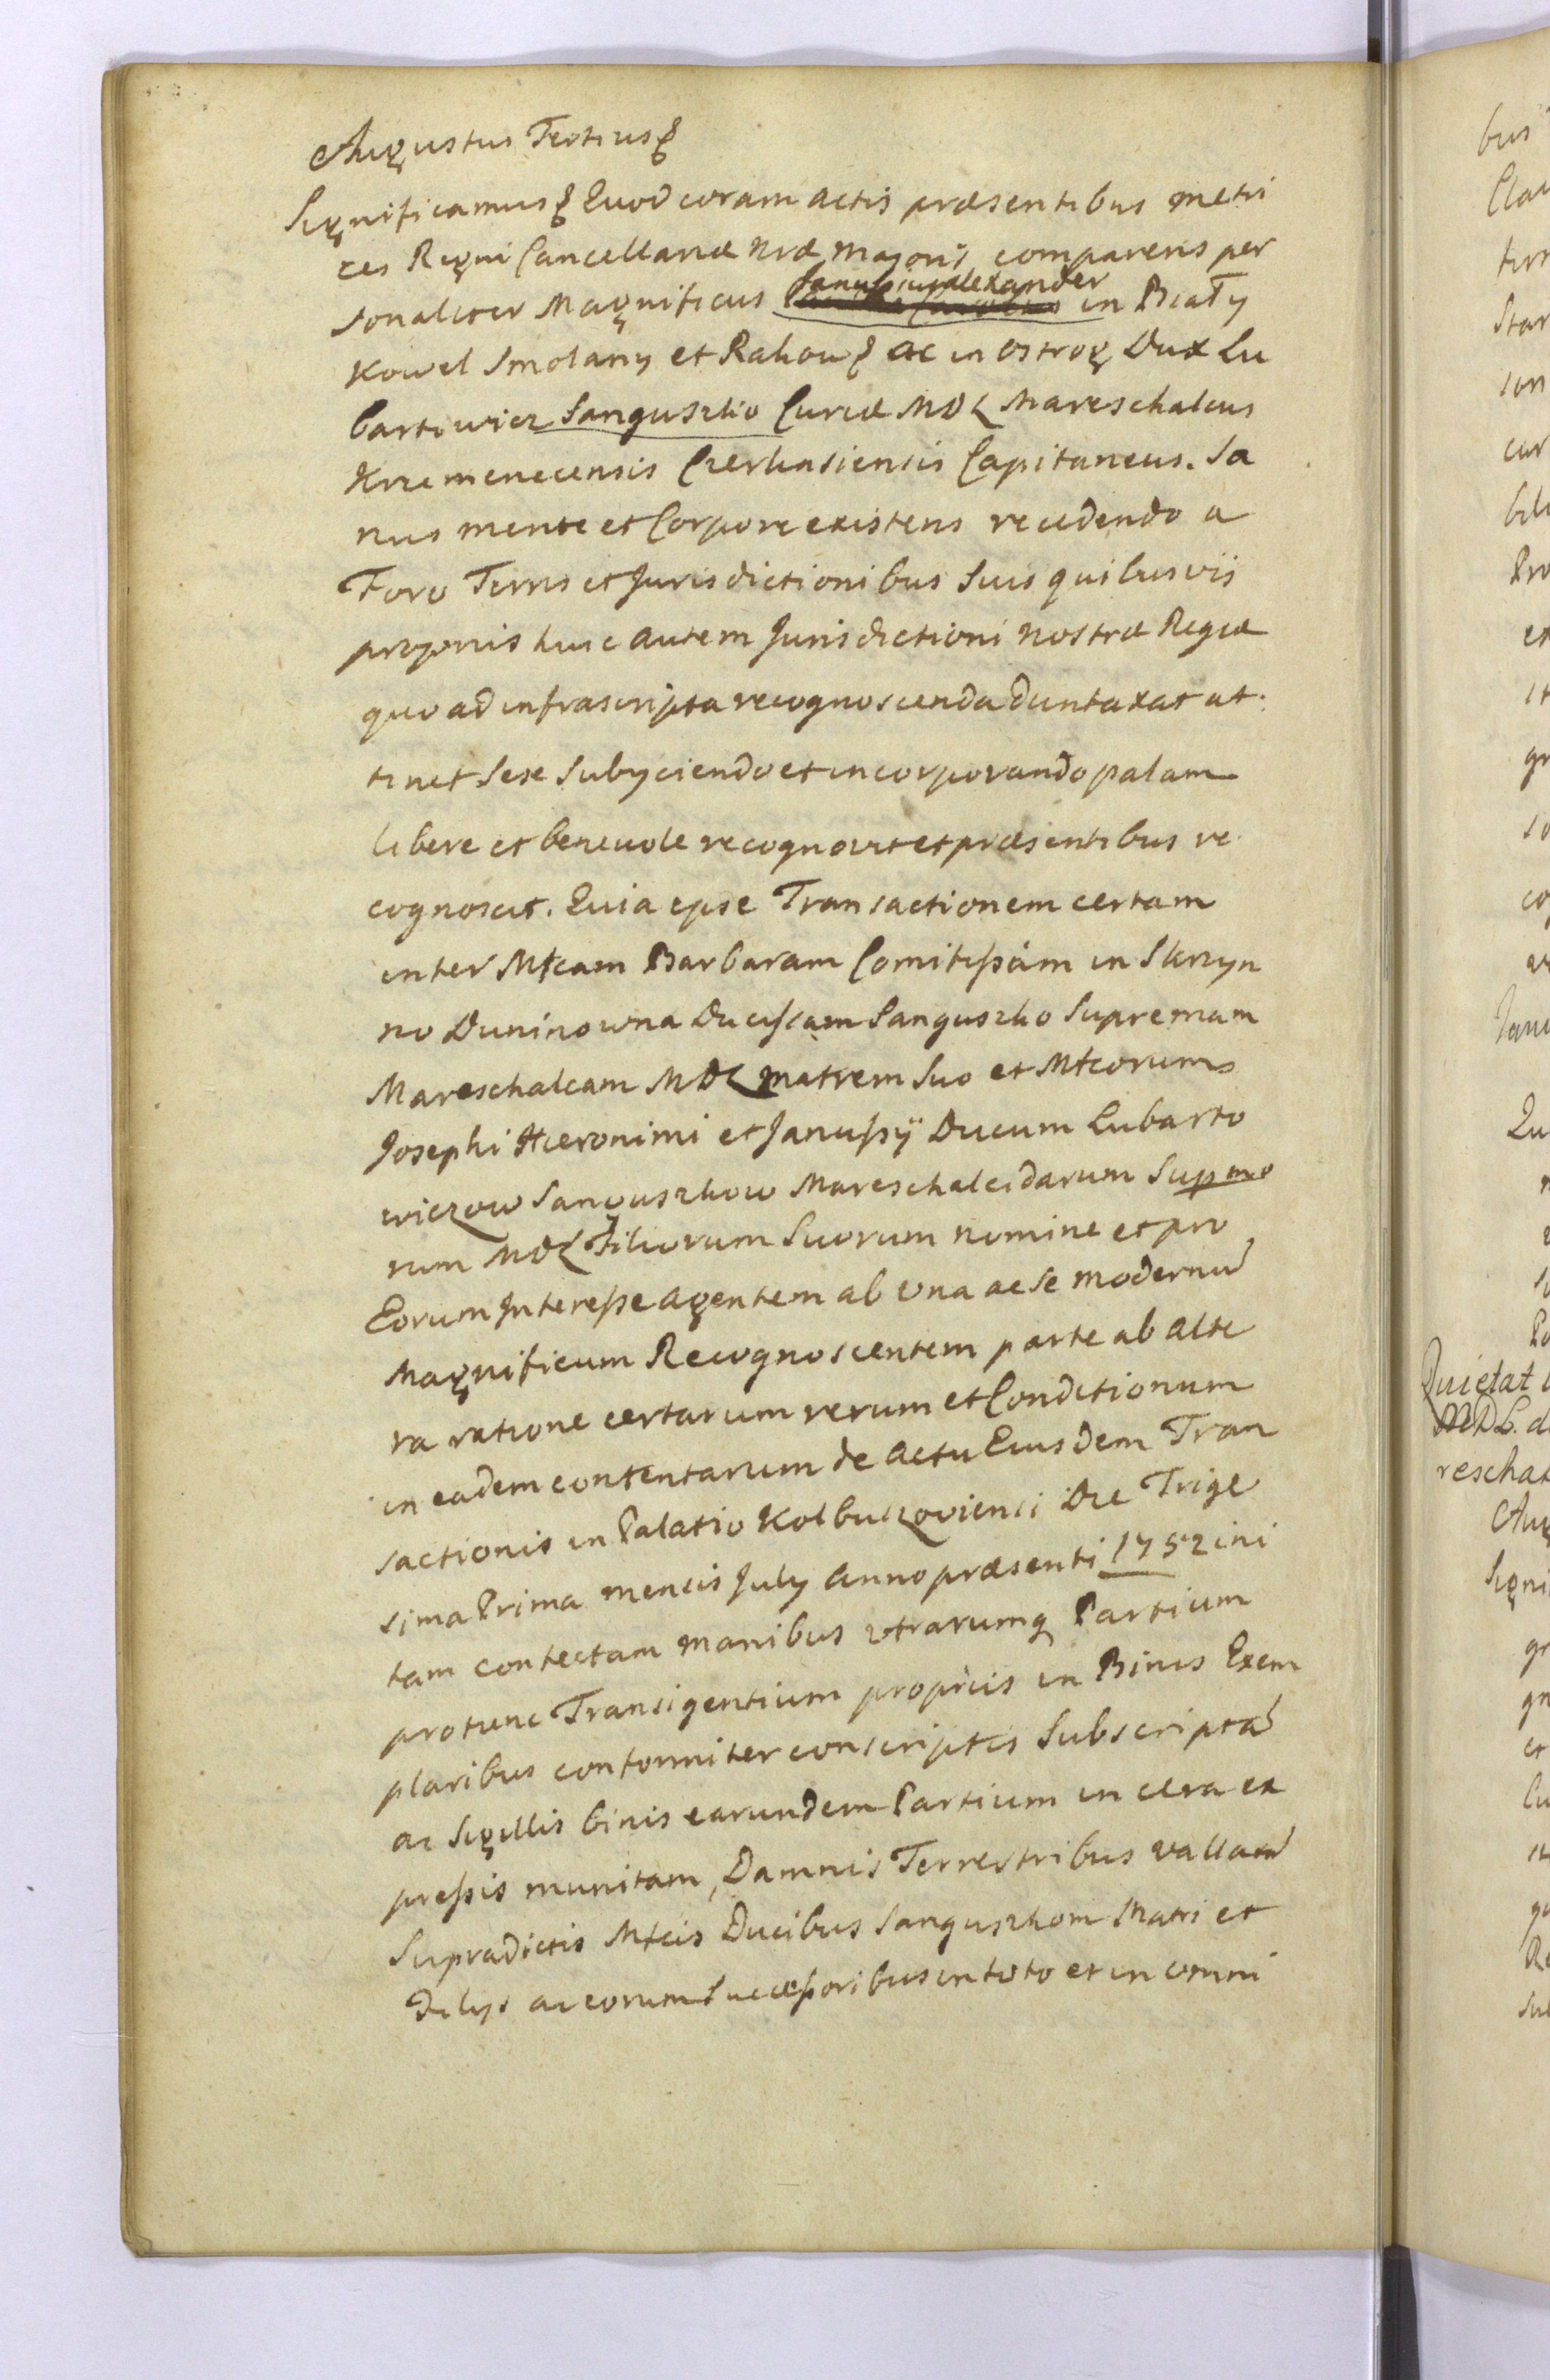 Augustus Tertius &
Significamus & Quod coram actis præsentibus metri
ces Regni Cancellariæ nræ Majoris comparens per
sonaliter Magnificus Janussius alexander in Biały
Kowel Smolany et Rakow & ac in Ostrog Dux Lu
bartowicz Sanguszko Curiæ MDL Mareschalcus
Krzemenecensis Czerkasiensis Capitaneus. Sa
nus mente et Corpore existens recedendo a
Foro Terris et Jurisdictionibus Suis quibusvis
proprijs huic autem Jurisdictioni nostræ Regiæ
quo ad infrascripta recognoscenda duntaxat at
tinet Sese Subyciendo et incorporando palam
libere et benevole recognovit et præsentibus re
cognoscit. Quia ipse Transactionem certam
inter Mfcam Barbaram Comitissam in Skrzyn
no Duninowna Ducissam Sanguszko Supremam
Mareschalcam MDL matrem Suo et Mfcorum
Josephi Hieronimi et Janussÿ Ducum Lubarto
wiczow Sanguszkow Mareschalcidarum Supmo
rum MDL Filiorum Suorum nomine et pro
Eorum Interesse agentem ab una ac se modernū
Magnificum Recognoscentem parte ab alte
ra ratione certarum rerum et Conditionum
in eadem contentarum de actu Eiusdem Tran
sactionis in Palatio Kolbuszoviensi Die Trige
sima Prima mensis July anno præsenti 1752 ini
tam confectam manibus utrarumq Partium
protunc Transigentium propriis in Binis Exem
plaribus conformiter conscriptis Subscriptā
ac Sigillis binis earundem Partium in cera ex
pressis munitam, Damnis Terrestribus vallatā
Supradictis Mfcis Ducibus Sanguszkom Matri et
Filys ac eorum Successoribus in toto et in omni
bus
Clau
Star
son
cur
bili
Pro
et
it
gn
so
cog
Janu
Qu
Quietat
MDL. d
reschal
Aug
Signi
gn
et
Re
Sub